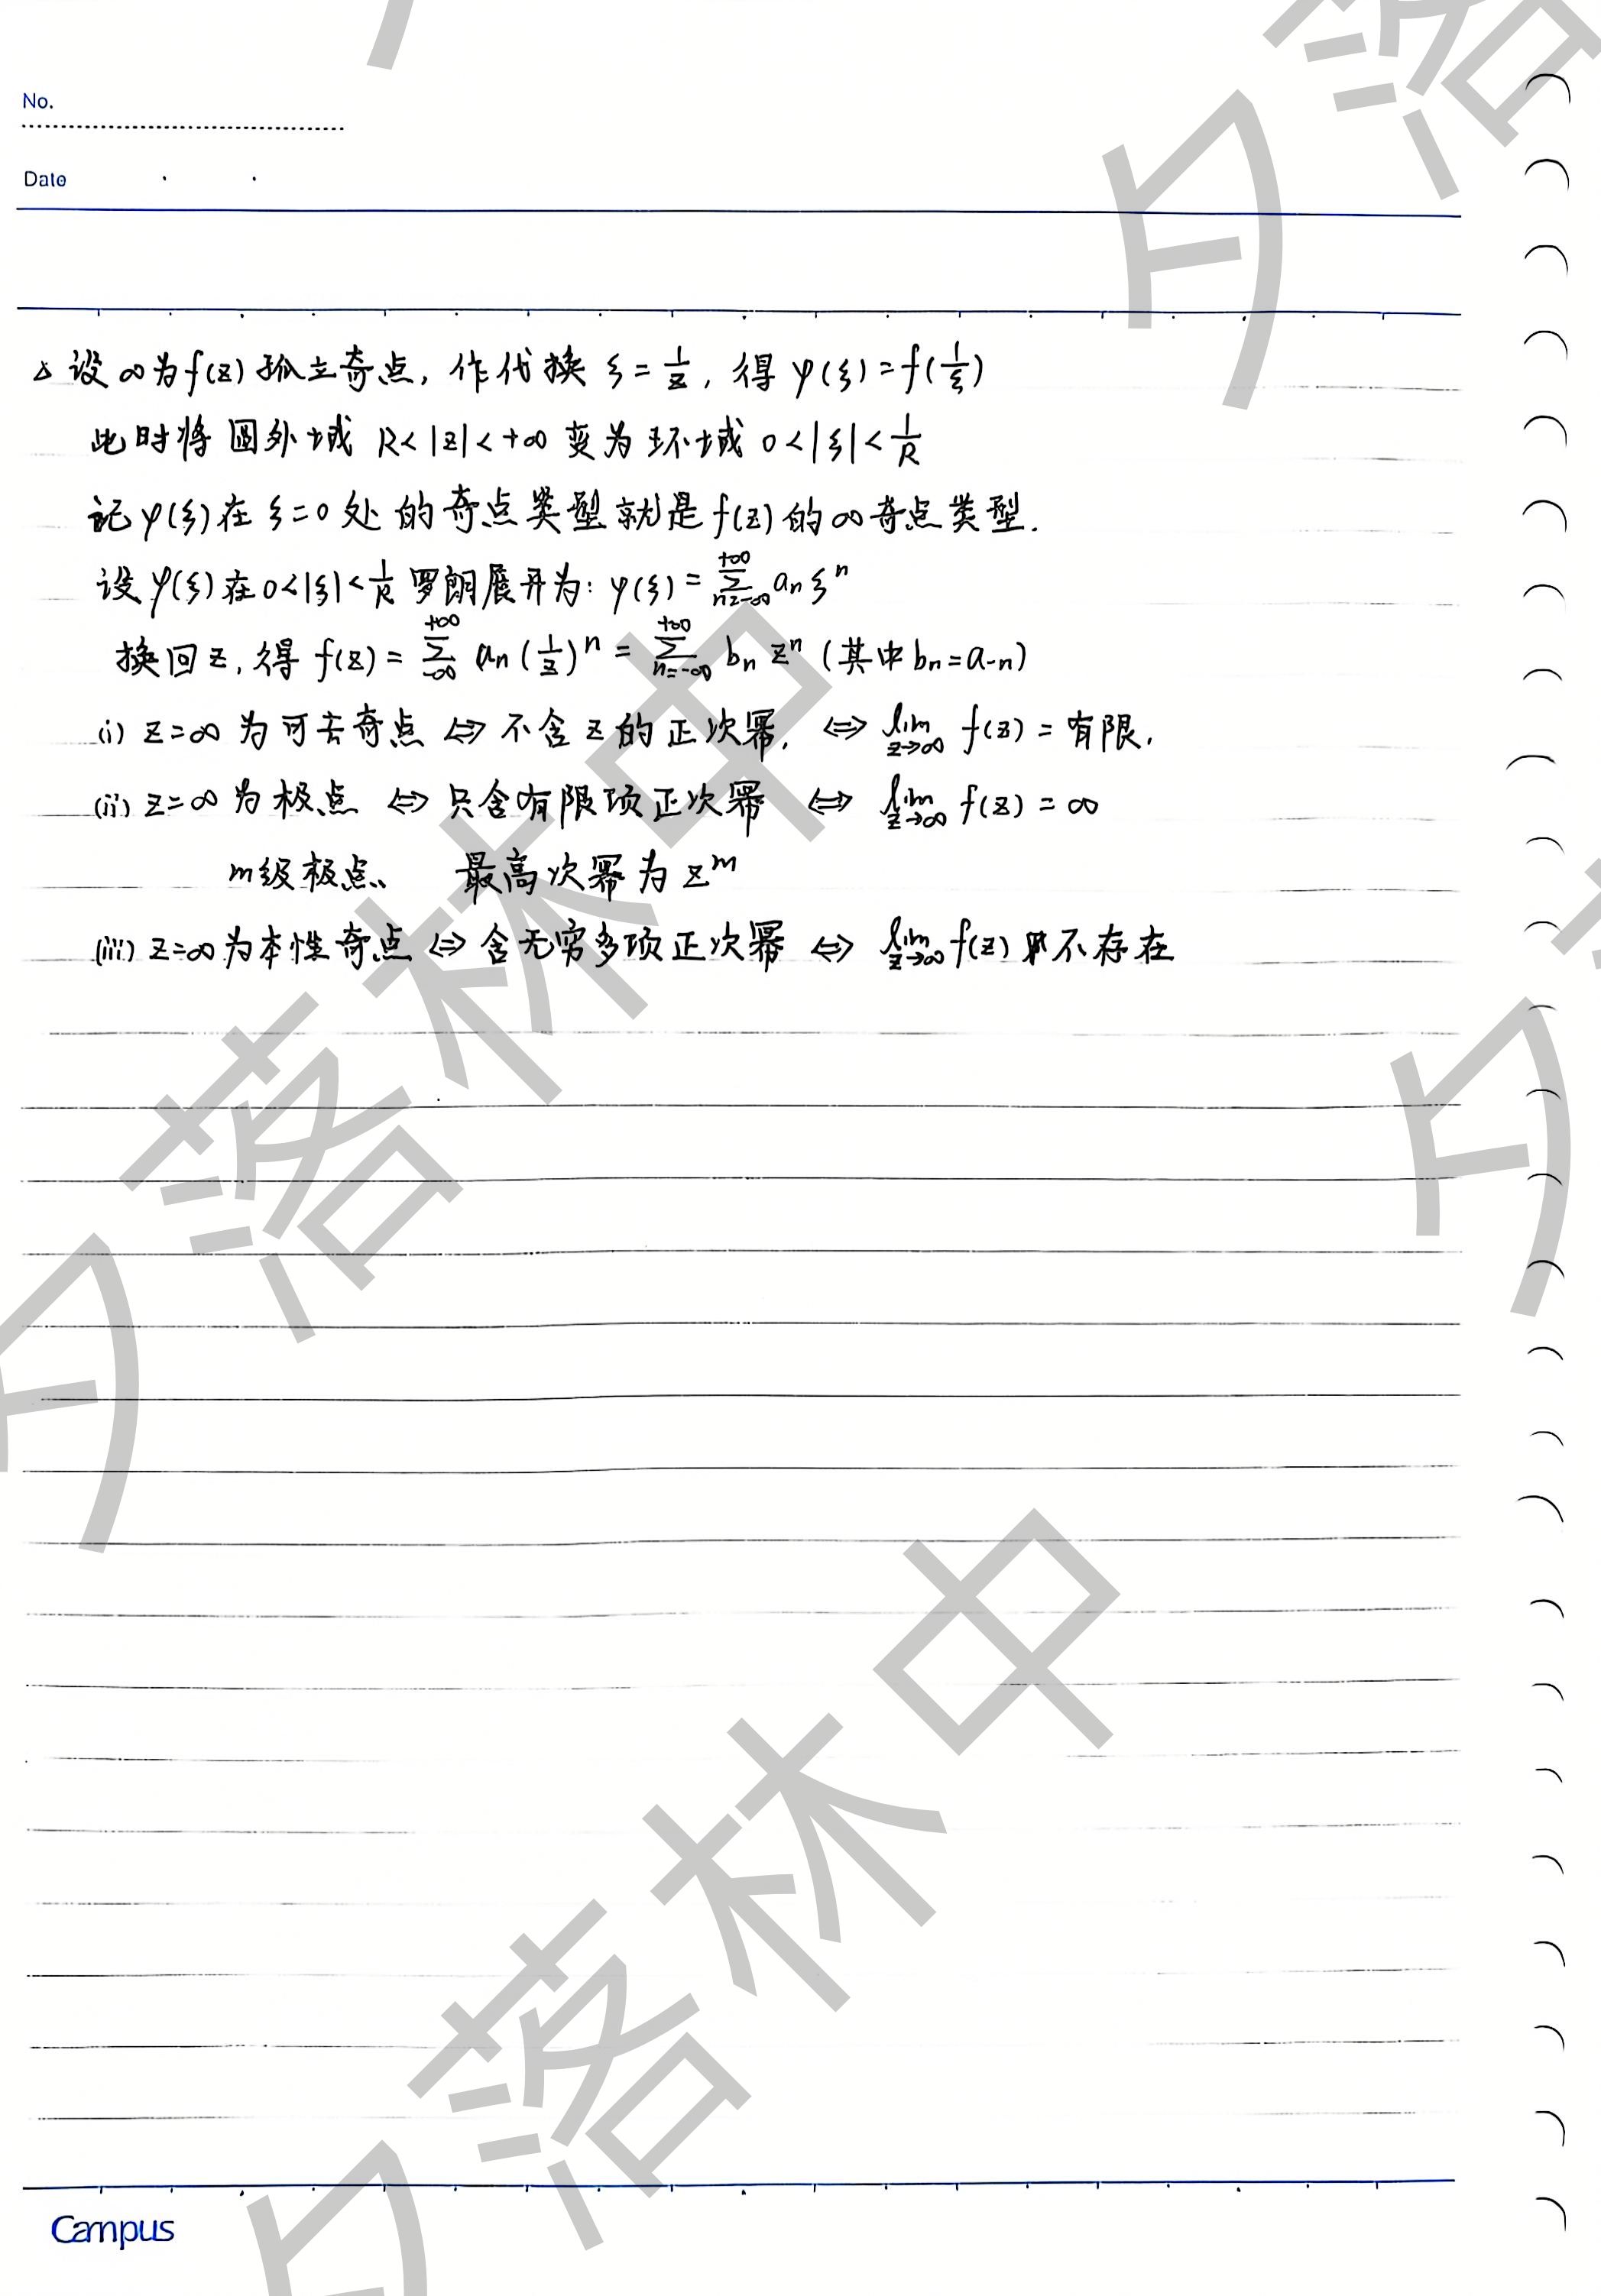 No.
Date
△ 设 ∞ 为 f(z) 孤立奇点, 作代换 ξ = 1/z, 得 φ(ξ) = f(1/ξ)
此时将圆外域 R < |z| < +∞ 变为环域 0 < |ξ| < 1/R
记 φ(ξ) 在 ξ = 0 处的奇点类型就是 f(z) 的 ∞ 奇点类型.
设 φ(ξ) 在 0 < |ξ| < 1/R 罗朗展开为: φ(ξ) = ∑_{n=-∞}^{+∞} a_n ξ^n
换回 z, 得 f(z) = ∑_{-∞}^{+∞} a_n (1/z)^n = ∑_{n=-∞}^{+∞} b_n z^n (其中 b_n = a_{-n})
(i) z=∞ 为可去奇点 ⇔ 不含 z 的正次幂, ⇔ lim_{z→∞} f(z) = 有限.
(ii) z=∞ 为极点 ⇔ 只含有限项正次幂 ⇔ lim_{z→∞} f(z) = ∞
m级极点 最高次幂为 z^m
(iii) z=∞ 为本性奇点 ⇔ 含无穷多项正次幂 ⇔ lim_{z→∞} f(z) 不存在
Campus
夕落林中
夕落林中
夕落
夕